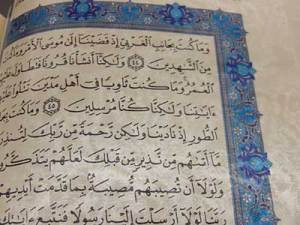 وَمَا كُنتَ بِجَانِبِ الْغَرْبِيِّ إِذْ قَضَيْنَا إِلَىٰ مُوسَى الْأَمْرَ وَمَا كُنتَ
مِنَ الشَّاهِدِينَ ٤٤ وَلَٰكِنَّا أَنشَأْنَا قُرُونًا فَتَطَاوَلَ عَلَيْهِمُ
الْعُمُرُ وَمَا كُنتَ ثَاوِيًا فِي أَهْلِ مَدْيَنَ تَتْلُوا عَلَيْهِمْ
ءَايَاتِنَا وَلَٰكِنَّا كُنَّا مُرْسِلِينَ ٤٥ وَمَا كُنتَ بِجَانِبِ
الطُّورِ إِذْ نَادَيْنَا وَلَٰكِن رَّحْمَةً مِّن رَّبِّكَ لِتُنذِرَ قَوْمًا
مَّا أَتَاهُم مِّن نَّذِيرٍ مِّن قَبْلِكَ لَعَلَّهُمْ يَتَذَكَّرُونَ
وَلَوْلَا أَن تُصِيبَهُم مُّصِيبَةٌ بِمَا قَدَّمَتْ أَيْدِيهِمْ
رَبَّنَا لَوْلَا أَرْسَلْتَ إِلَيْنَا رَسُولًا فَنَتَّبِعَ ءَايَاتِكَ